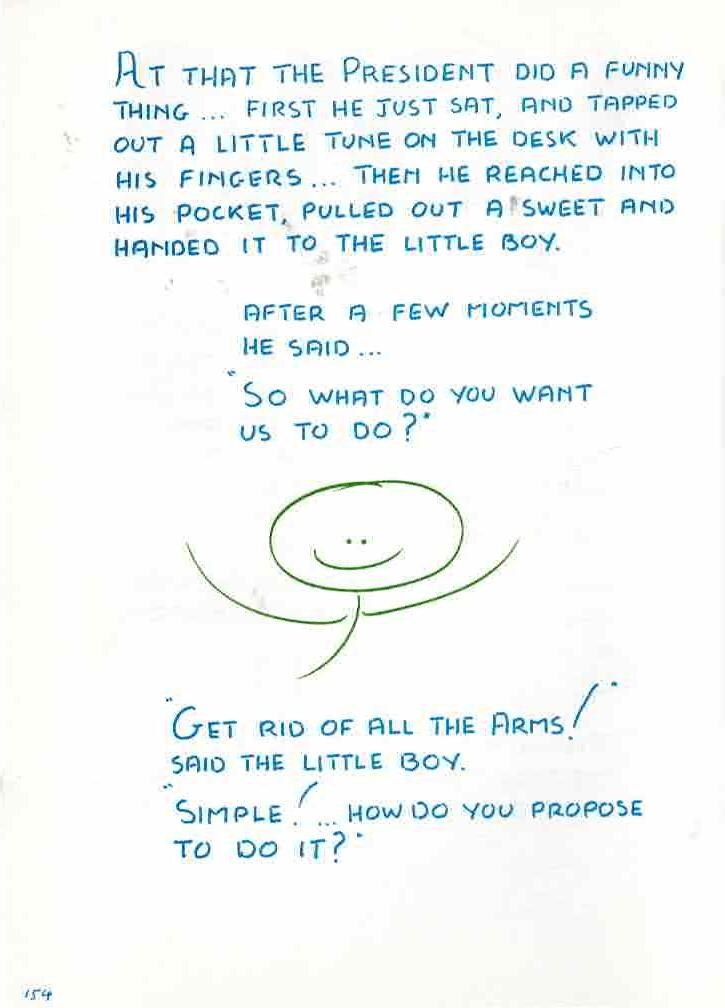 At that the President did a funny
thing ... First he just sat, and tapped
out a little tune on the desk with
his fingers ... Then he reached into
his pocket, pulled out a sweet and
handed it to the little boy.
After a few moments
he said ...
"So what do you want
us to do?"
"Get rid of all the Arms!"
said the little boy.
"Simple! ... how do you propose
to do it?"
154